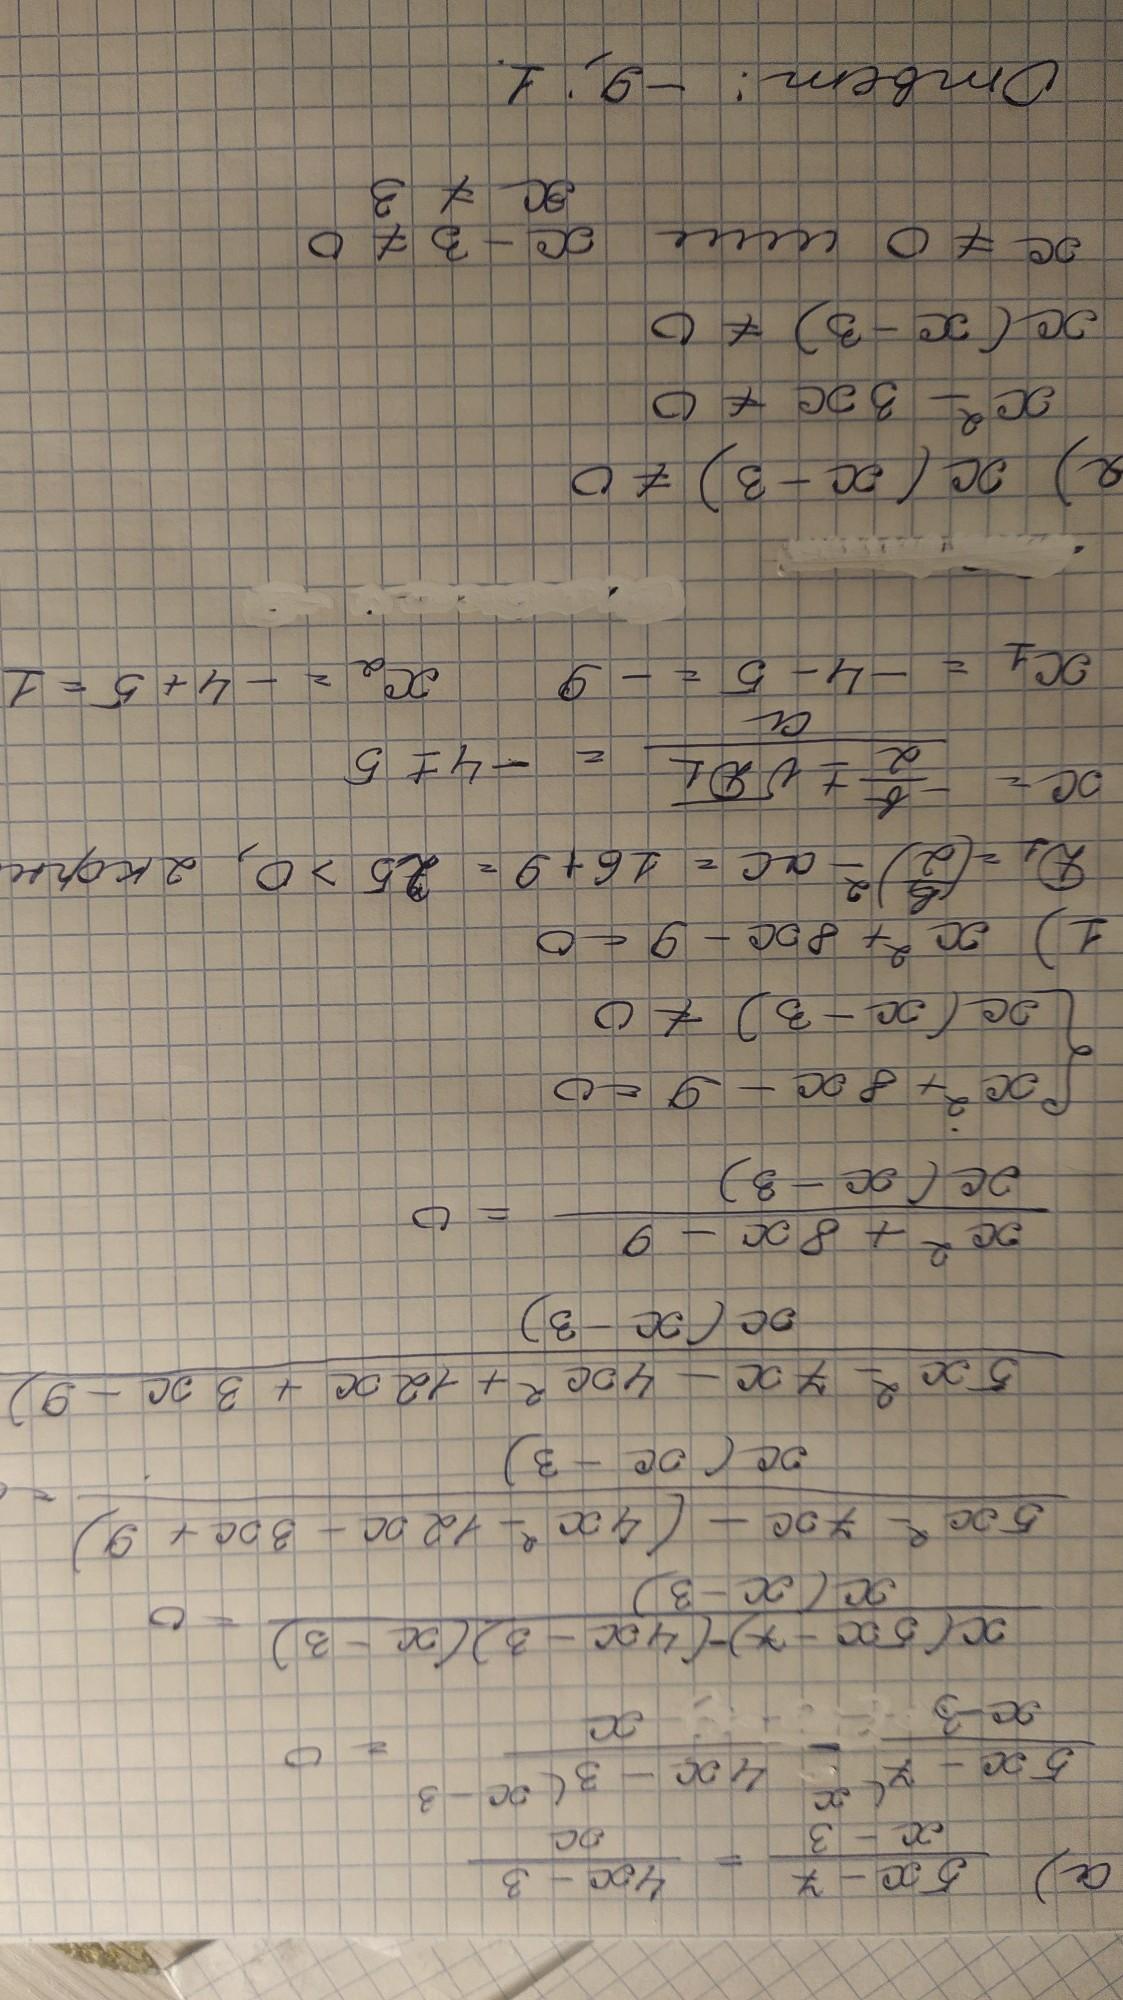 а) (5x - 7)/(x - 3) = (4x - 3)/x
(5x - 7)/(x - 3) (x - (4x - 3)/x (x - 3 = 0
(x(5x - 7) - (4x - 3)(x - 3))/(x(x - 3)) = 0
(5x² - 7x - (4x² - 12x - 3x + 9))/(x(x - 3)) =
(5x² - 7x - 4x² + 12x + 3x - 9))/(x(x - 3))
(x² + 8x - 9)/(x(x - 3)) = 0
{ x² + 8x - 9 = 0
x(x - 3) ≠ 0
1) x² + 8x - 9 = 0
D₁ = (b/2)² - ac = 16 + 9 = 25 > 0, 2 корн
x = (-b/2 ± √D₁)/a = -4 ± 5
x₁ = -4 - 5 = -9 x₂ = -4 + 5 = 1
2) x(x - 3) ≠ 0
x² - 3x ≠ 0
x(x - 3) ≠ 0
x ≠ 0 или x - 3 ≠ 0
x ≠ 3
Ответ: -9; 1.